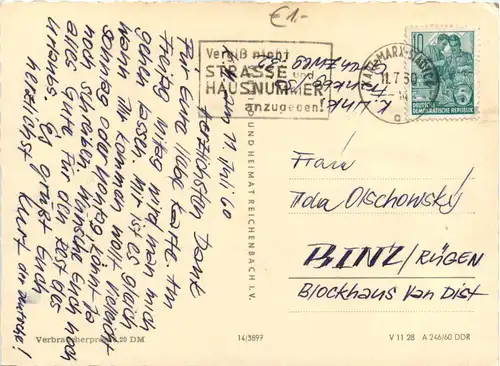 €1.-
Vergiß nicht
STRASSE und
HAUSNUMMER
anzugeben!
KARL-MARX-STADT
11.7.60
a
10
DEUTSCHE
DEMOKRATISCHE REPUBLIK
K. Linke
11. Juli 60
Herzlichsten Dank
für Eure liebe Karte. Am
Freitag mittag wird man mich
gehen lassen. Mir ist es gleich
wann Ihr kommen wollt vielleicht
Sonntag oder Montag. Könnt ja
noch schreiben. Wünsche Euch noch
alles Gute für den Rest des
Urlaubs. Es grüßt Euch
herzlichst Kurt
Frau
Ida Olschowsky
BINZ/RÜGEN
Blockhaus van Dist
UND HEIMAT REICHENBACH I. V.
Verbraucherpreis 0,20 DM
14/3897
V 11 28 A 246/60 DDR